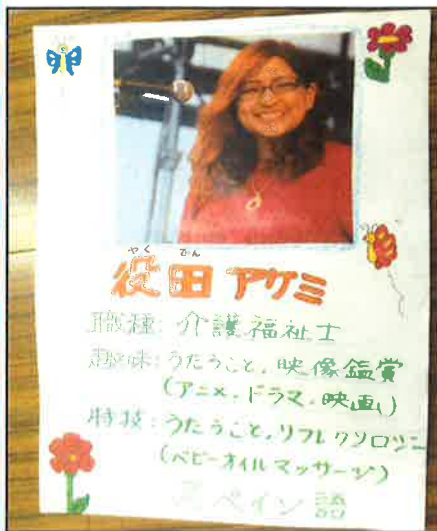 やく でん
役田 アケミ
職種:介護福祉士
趣味:うたうこと、映像鑑賞
(アニメ、ドラマ、映画)
特技:うたうこと、リフレクソロジー
(ベビーオイルマッサージ)
スペイン語